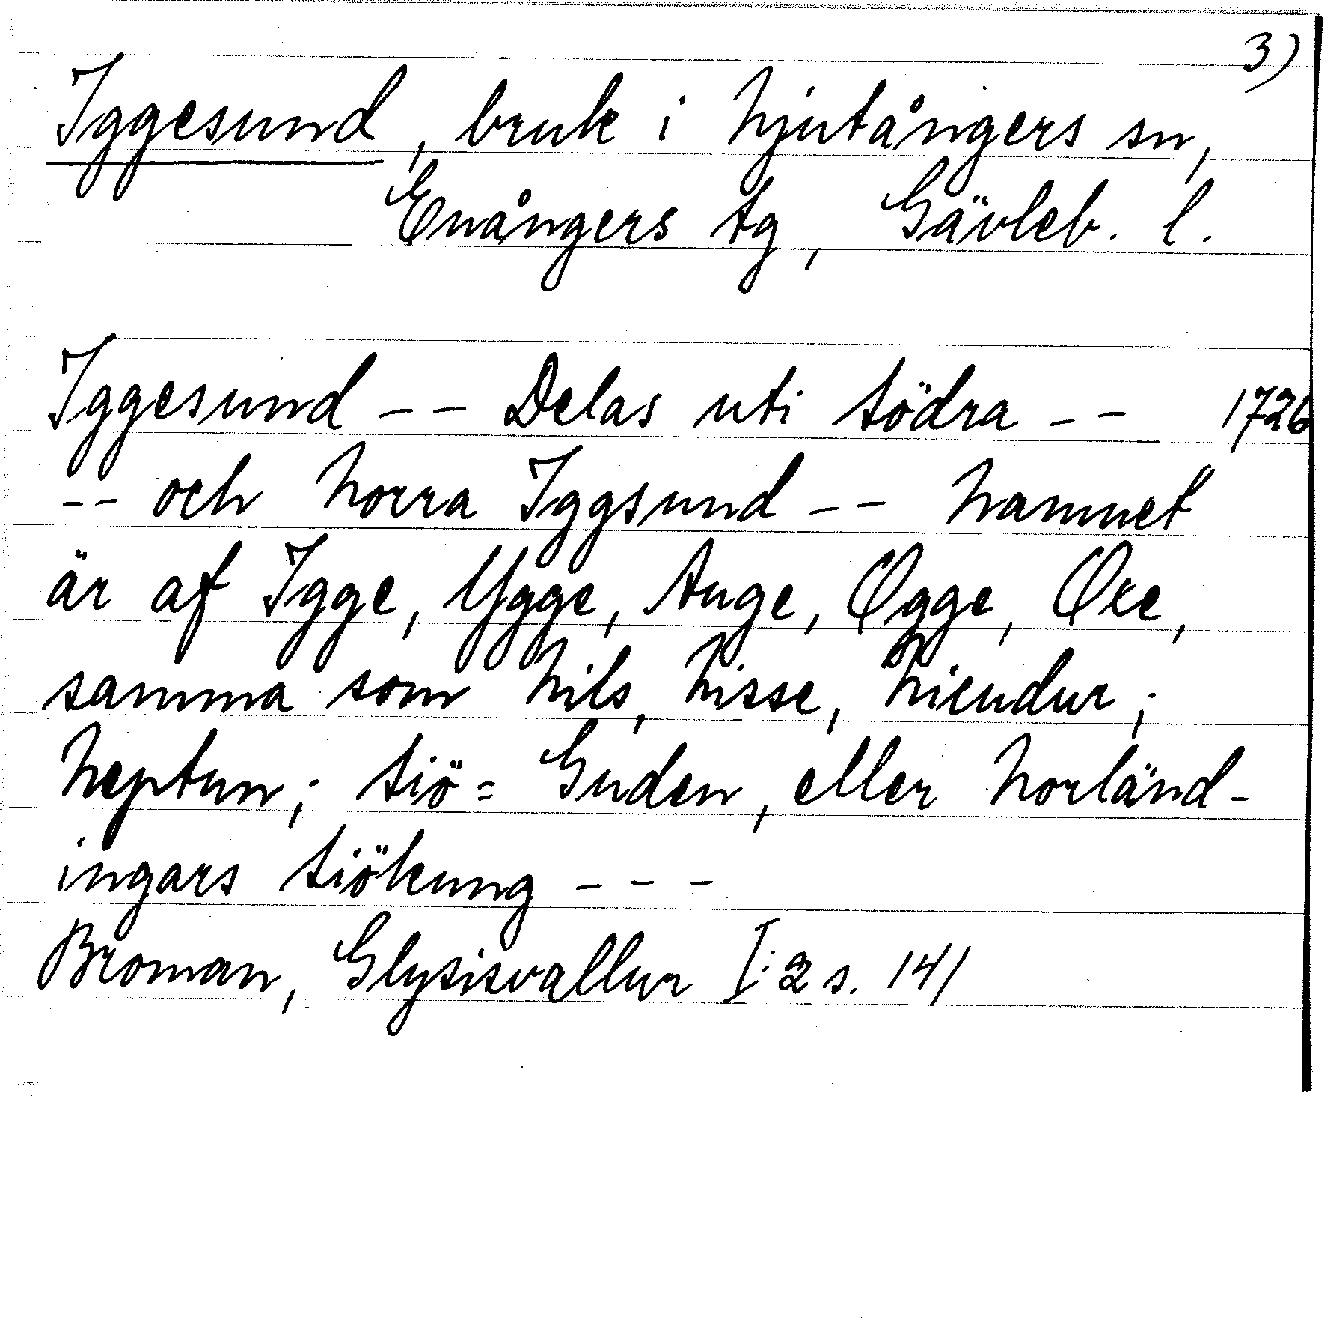 3)
Iggesund, bruk i Njutångers sn,
Enångers tg, Gävleb. l.
Iggesund -- Delas uti Södra -- 1726
-- och Norra Iggsund -- Namnet
är af Igge, Ygge, Auge, Øgge, Øke,
samma som Nils, Nisse, Niendur;
Neptun; Siö= Guden, eller Norländ-
ingars Siökung ---
Broman, Glysisvallur I:2 s. 141